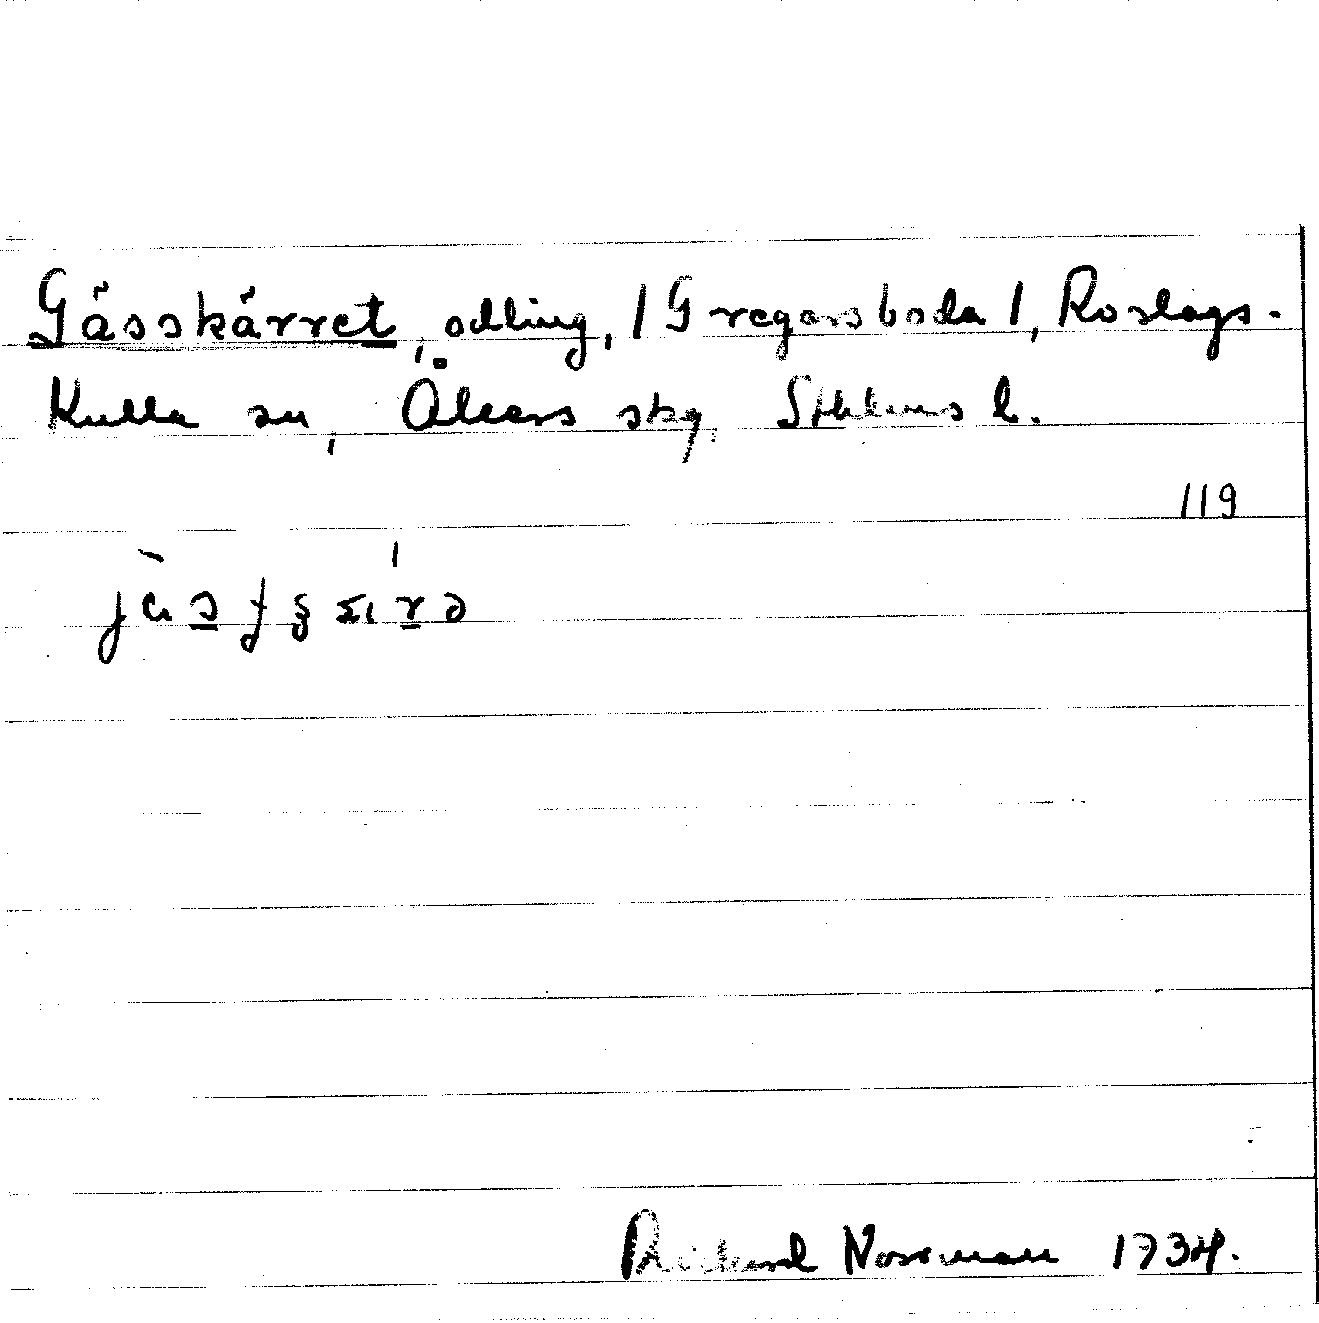 Gässkärret, odling, /Gregarsboda/, Roslags-
Kulla sn, Åkers skg, Sthlms l.
119
Rickard Norrman 1934.